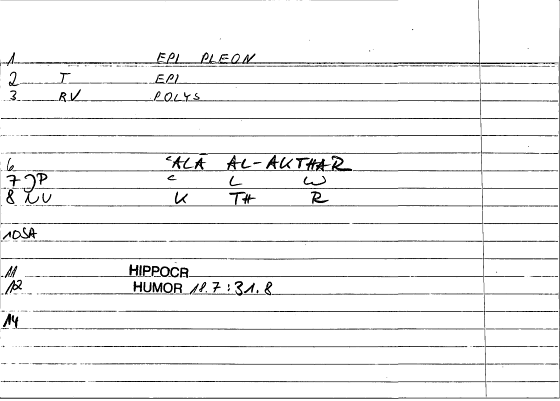 1 EPI PLEON
2 T EPI
3 RV POLYS
6 ʿALĀ AL-AKTHAR
7 P ʿ L W
8 K TH R
10SA
11 HIPPOCR
12 HUMOR 18.7:31.8
14